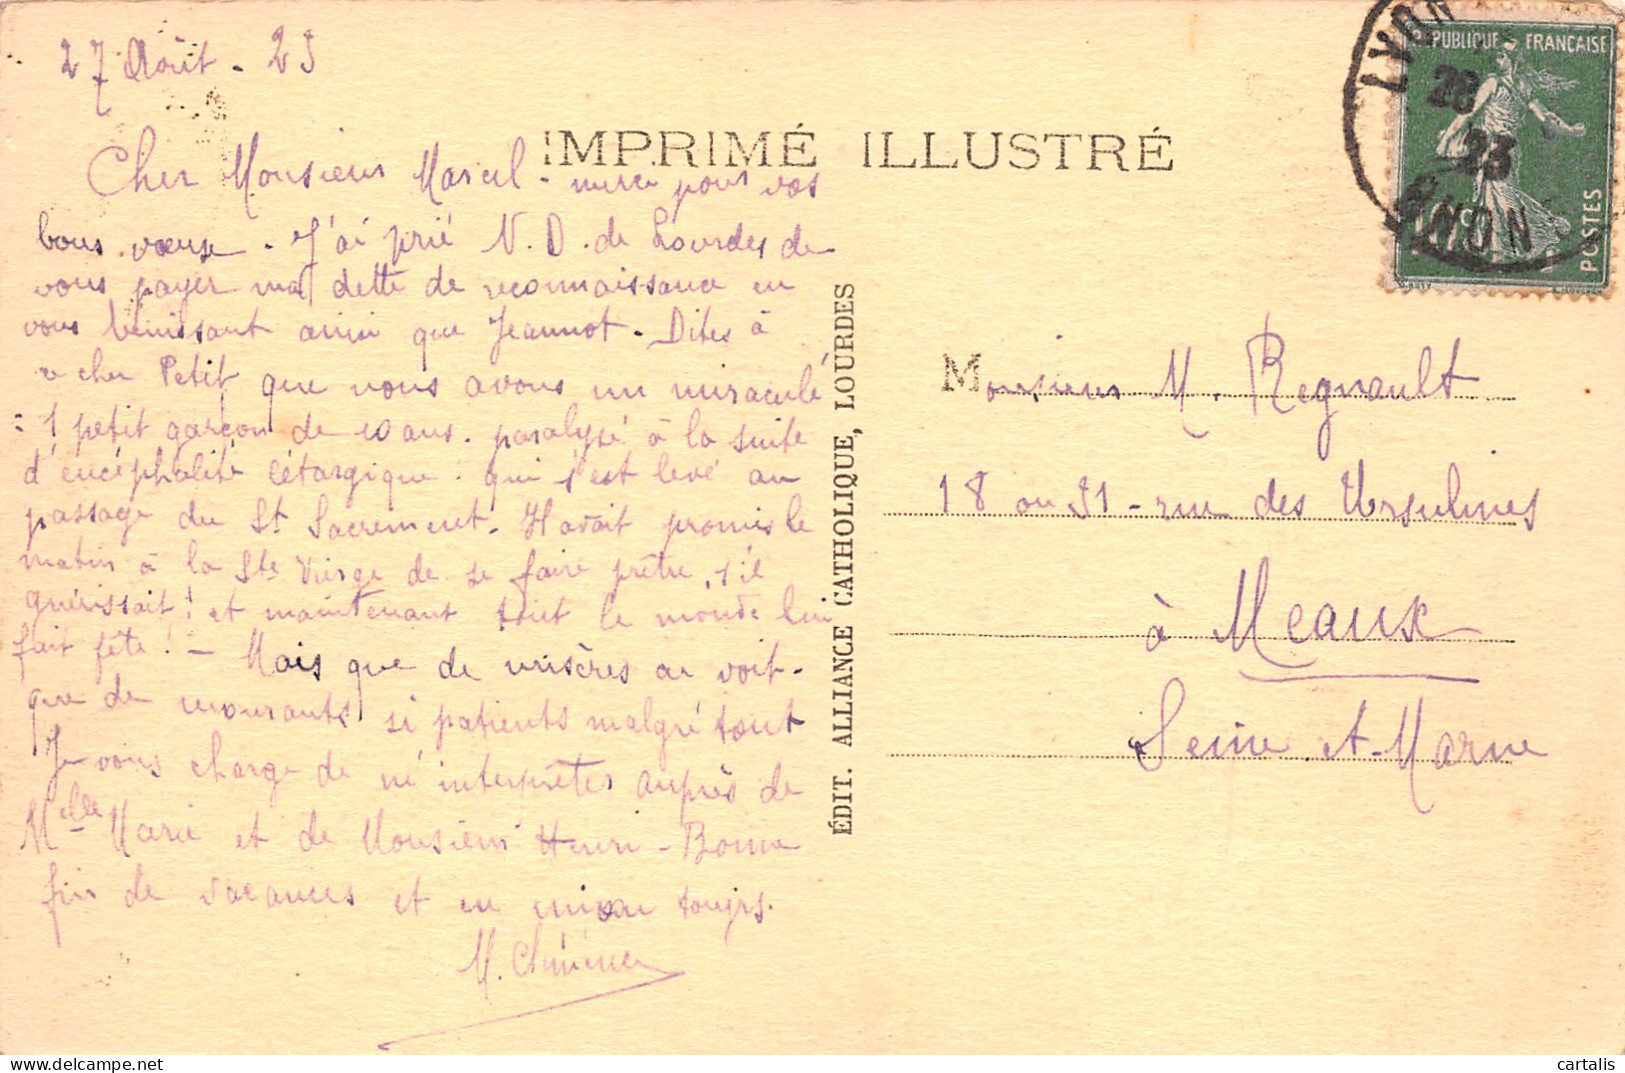 27 Août - 23
IMPRIMÉ ILLUSTRÉ
Cher Monsieur Marcel - merci pour vos
bons voeux - J'ai prié N. D. de Lourdes de
vous payer ma dette de reconnaissance en
vous bénissant ainsi que Jeannot - Dites à
v cher Petit que nous avons un miraculé
= 1 petit garçon de 10 ans - paralysé à la suite
d'encéphalite léthargique - qui s'est levé au
passage du St Sacrement - Il avait promis le
matin à la Ste Vierge de se faire prêtre, s'il
guérissait! et maintenant tout le monde lui
fait fête! - Mais que de misères on voit -
que de mourants si patients malgré tout
Je vous charge de m'interpréter auprès de
Melle Marie et de Monsieur Henri - Bonne
fin de vacances et en union toujrs.
M.
ÉDIT. ALLIANCE CATHOLIQUE, LOURDES
RÉPUBLIQUE FRANÇAISE
POSTES
10c
LYON
26
23
RHONE
Monsieur M. Regnault
18 ou 31 - rue des Ursulines
à Meaux
Seine et-Marne
cartalis